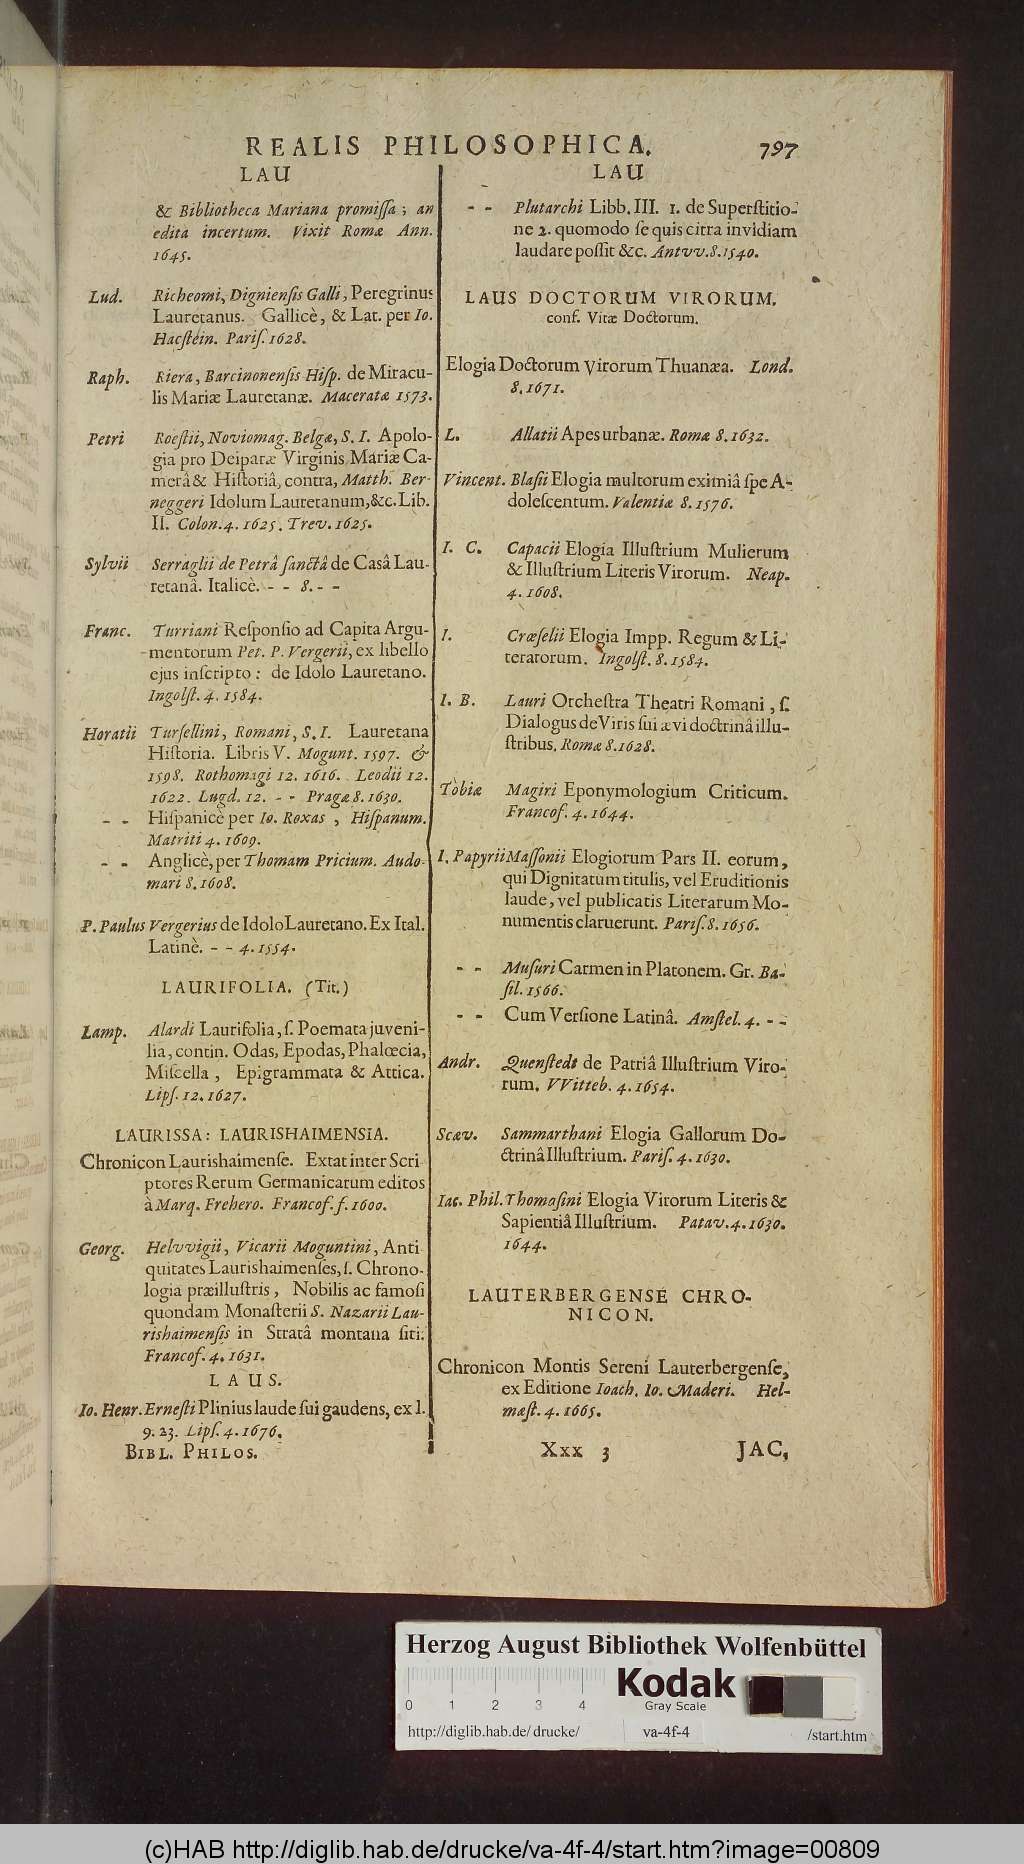 REALIS PHILOSOPHICA. 797
LAU
& Bibliotheca Mariana promiſſa; an
edita incertum. Vixit Romæ Ann.
1645.
Lud. Richeomi, Dignienſis Galli, Peregrinus
Lauretanus. Gallicè, & Lat. per Io.
Hacſtein. Pariſ. 1628.
Raph. Riera, Barcinonenſis Hiſp. de Miracu-
lis Mariæ Lauretanæ. Maceratæ 1573.
Petri Roeſtii, Noviomag. Belgæ, S. I. Apolo-
gia pro Deiparæ Virginis Mariæ Ca-
merâ & Hiſtoriâ, contra, Matth. Ber-
neggeri Idolum Lauretanum, &c. Lib.
II. Colon. 4. 1625. Trev. 1625.
Sylvii Serraglii de Petrâ ſanctâ de Casâ Lau-
retanâ. Italicè. - - 8. - -
Franc. Turriani Reſponſio ad Capita Argu-
mentorum Pet. P. Vergerii, ex libello
ejus inſcripto: de Idolo Lauretano.
Ingolſt. 4. 1584.
Horatii Turſellini, Romani, S. I. Lauretana
Hiſtoria. Libris V. Mogunt. 1597. &
1598. Rothomagi 12. 1616. Leodii 12.
1622. Lugd. 12. - - Pragæ 8. 1630.
- - Hiſpanicè per Io. Roxas, Hiſpanum.
Matriti 4. 1609.
- - Anglicè, per Thomam Pricium. Audo-
mari 8. 1608.
P. Paulus Vergerius de Idolo Lauretano. Ex Ital.
Latinè. - - 4. 1554.
LAURIFOLIA. (Tit.)
Lamp. Alardi Laurifolia, ſ. Poemata juveni-
lia, contin. Odas, Epodas, Phalœcia,
Miſcella, Epigrammata & Attica.
Lipſ. 12. 1627.
LAURISSA: LAURISHAIMENSIA.
Chronicon Laurishaimenſe. Extat inter Scri
ptores Rerum Germanicarum editos
à Marq. Frehero. Francof. f. 1600.
Georg. Helvvigii, Vicarii Moguntini, Anti
quitates Laurishaimenſes, ſ. Chrono-
logia præilluſtris, Nobilis ac famoſi
quondam Monaſterii S. Nazarii Lau-
rishaimenſis in Stratâ montana ſiti.
Francof. 4. 1631.
LAUS.
Io. Henr. Erneſti Plinius laude ſui gaudens, ex l.
9. 23. Lipſ. 4. 1676.
BIBL. PHILOS.
LAU
- - Plutarchi Libb. III. 1. de Superſtitio-
ne 2. quomodo ſe quis citra invidiam
laudare poſſit &c. Antvv. 8. 1540.
LAUS DOCTORUM VIRORUM.
conf. Vitæ Doctorum.
Elogia Doctorum Virorum Thuanæa. Lond.
8. 1671.
L. Allatii Apes urbanæ. Romæ 8. 1632.
Vincent. Blaſii Elogia multorum eximiâ ſpe A-
doleſcentum. Valentiæ 8. 1576.
I. C. Capacii Elogia Illuſtrium Mulierum
& Illuſtrium Literis Virorum. Neap.
4. 1608.
I. Cræſelii Elogia Impp. Regum & Li-
teratorum. Ingolſt. 8. 1584.
I. B. Lauri Orcheſtra Theatri Romani, ſ.
Dialogus de Viris ſui ævi doctrinâ illu-
ſtribus. Romæ 8. 1628.
Tobiæ Magiri Eponymologium Criticum.
Francof. 4. 1644.
I. Papyrii Maſſonii Elogiorum Pars II. eorum,
qui Dignitatum titulis, vel Eruditionis
laude, vel publicatis Literarum Mo-
numentis claruerunt. Pariſ. 8. 1656.
- - Muſuri Carmen in Platonem. Gr. Ba-
ſil. 1566.
- - Cum Verſione Latinâ. Amſtel. 4. - -
Andr. Quenſtedt de Patriâ Illuſtrium Viro-
rum. VVitteb. 4. 1654.
Scæv. Sammarthani Elogia Gallorum Do-
ctrinâ Illuſtrium. Pariſ. 4. 1630.
Iac. Phil. Thomaſini Elogia Virorum Literis &
Sapientiâ Illuſtrium. Patav. 4. 1630.
1644.
LAUTERBERGENSE CHRO-
NICON.
Chronicon Montis Sereni Lauterbergenſe,
ex Editione Ioach. Io. Maderi. Hel-
mæſt. 4. 1665.
Xxx 3 JAC,
Herzog August Bibliothek Wolfenbüttel
0 1 2 3 4
Kodak
Gray Scale
http://diglib.hab.de/drucke/ va-4f-4 /start.htm
(c)HAB http://diglib.hab.de/drucke/va-4f-4/start.htm?image=00809